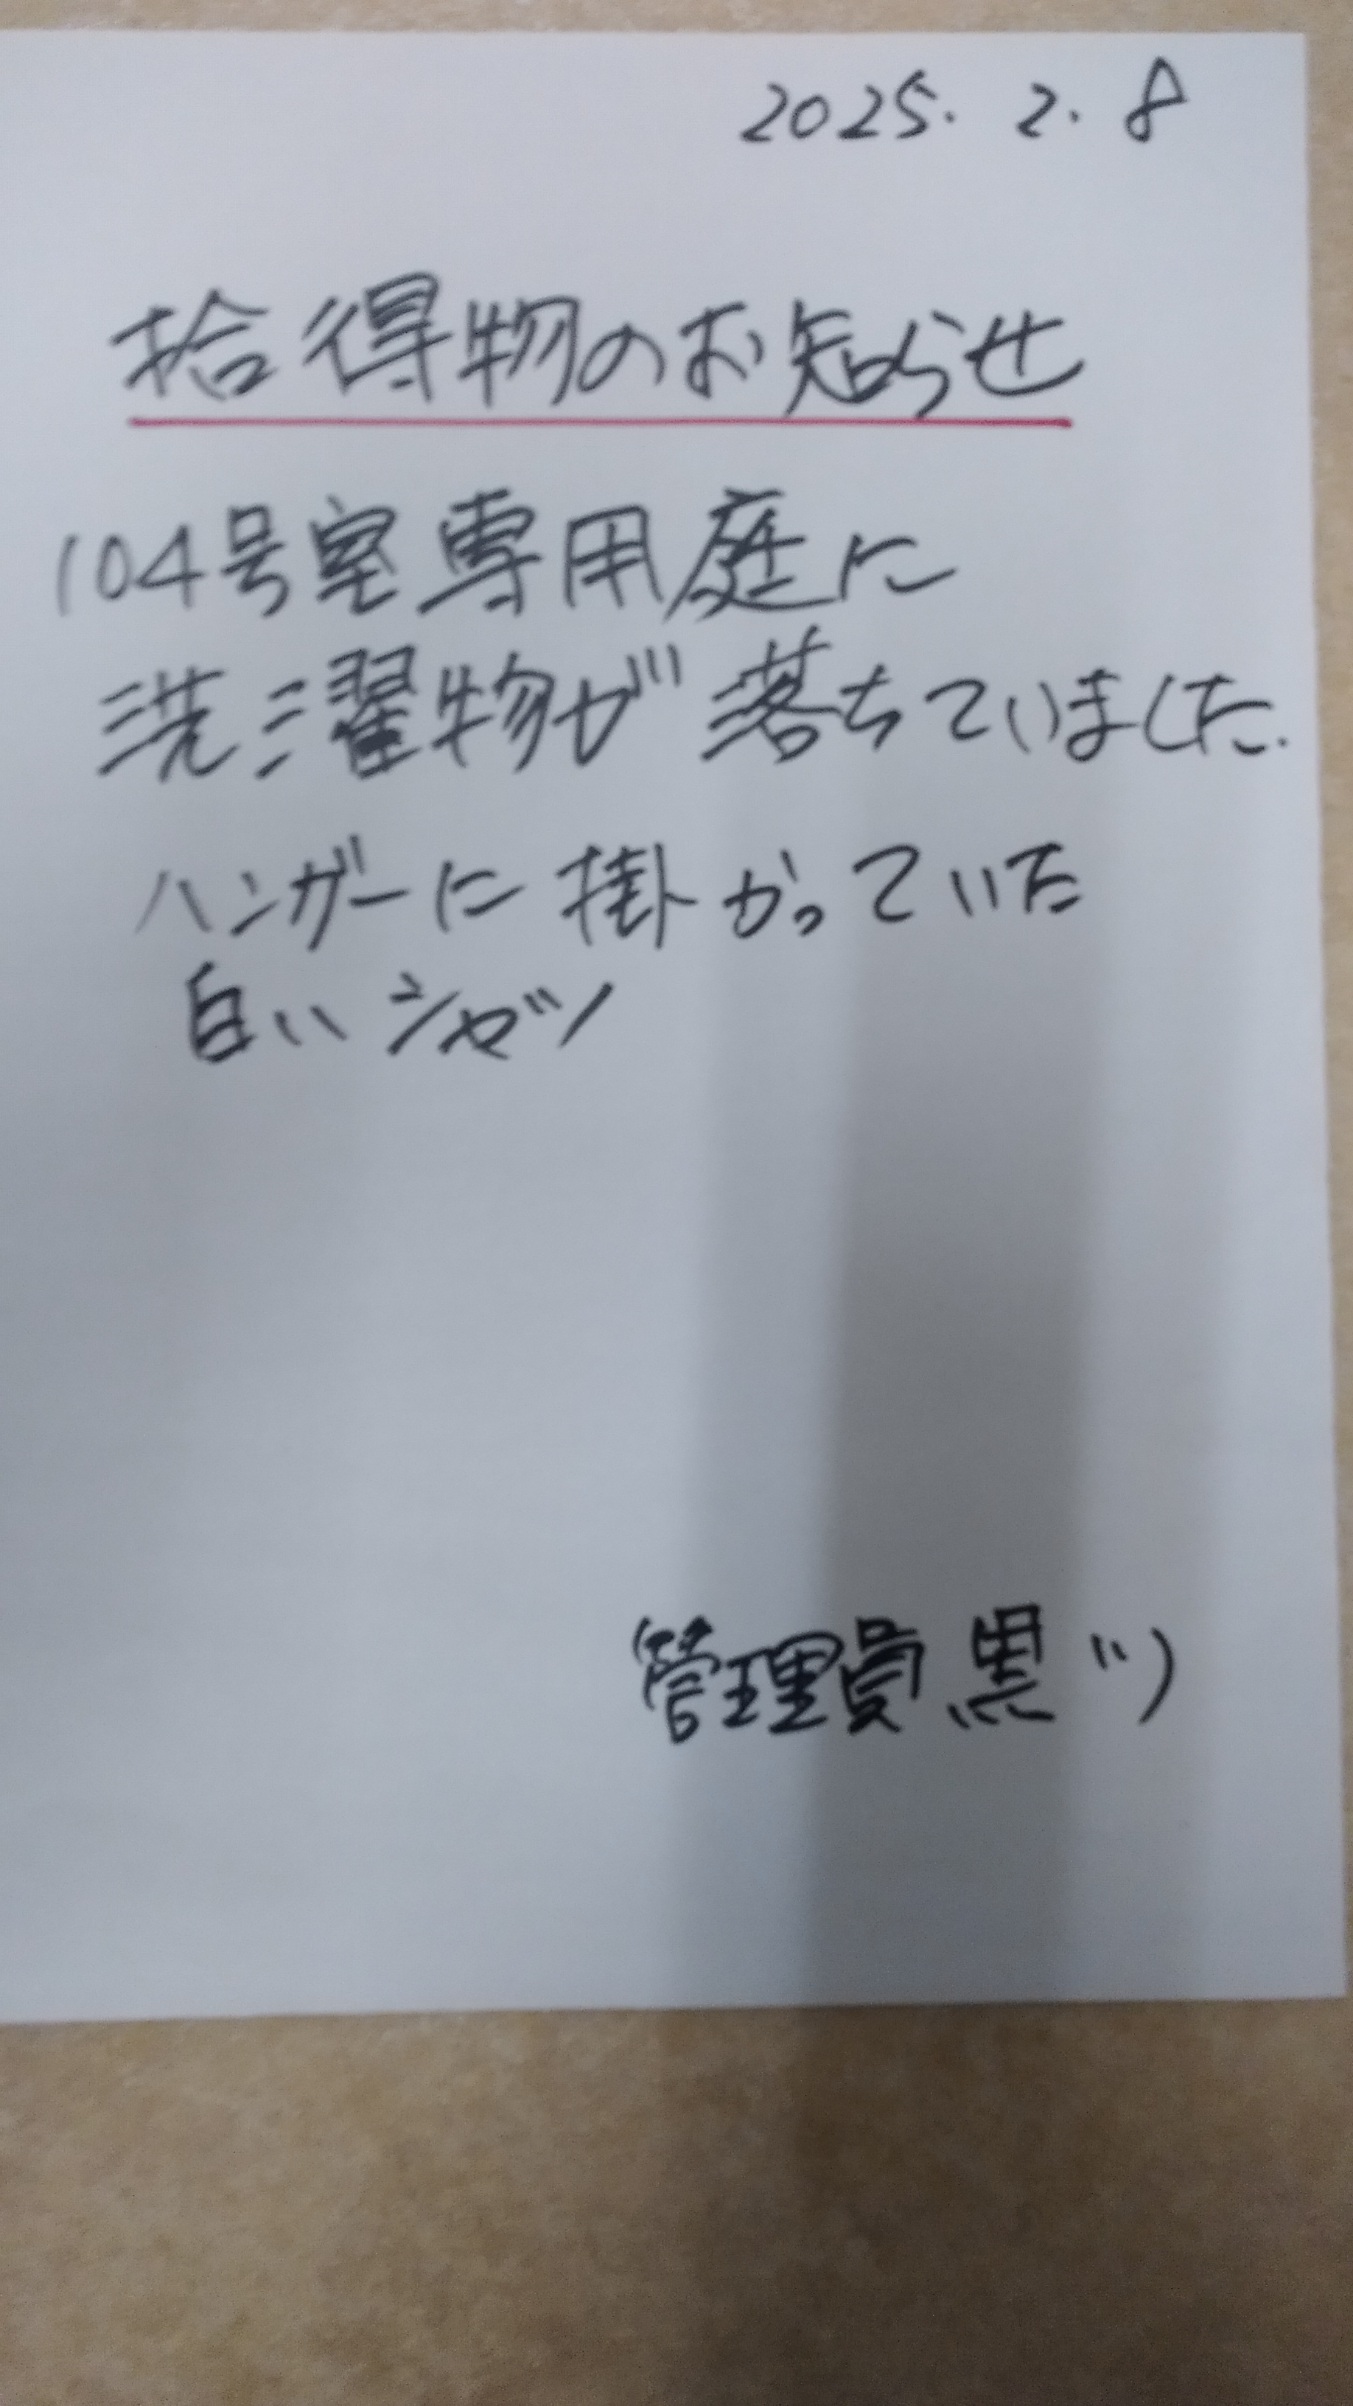 2025. 2. 8
拾得物のお知らせ
104号室専用庭に
洗濯物が落ちていました.
ハンガーに掛かっていた
白いシャツ
管理員 黒